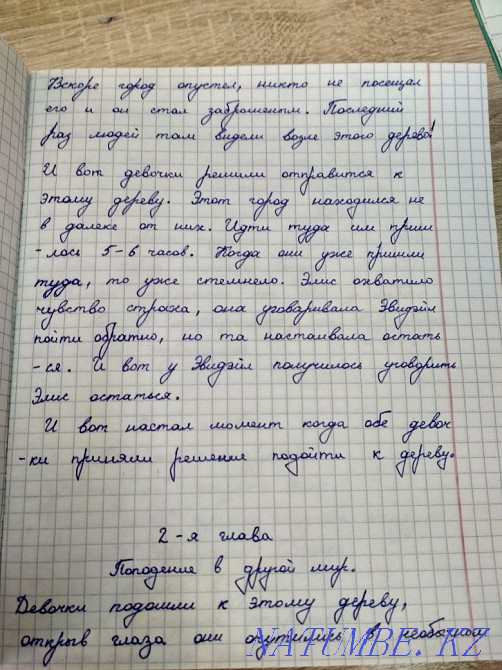 Вскоре город опустел, никто не посещал
его и он стал заброшенным. Последний
раз людей там видели возле этого дерева!
И вот девочки решили отправится к
этому дереву. Этот город находился не
в далеке от них. Идти туда им приш
-лось 5-6 часов. Когда они уже пришли
туда, то уже стемнело. Элис охватило
чувство страха, она уговаривала Эвидэйл
пойти обратно, но та настаивала остать
-ся. И вот у Эвидэйл получилось уговорить
Элис остаться.
И вот настал момент когда обе девоч
-ки приняли решения подойти к дереву.
2-я глава
Поподение в другой мир.
Девочки подошли к этому дереву,
открыв глаза они очутились в необычном
NATUMBE.KZ